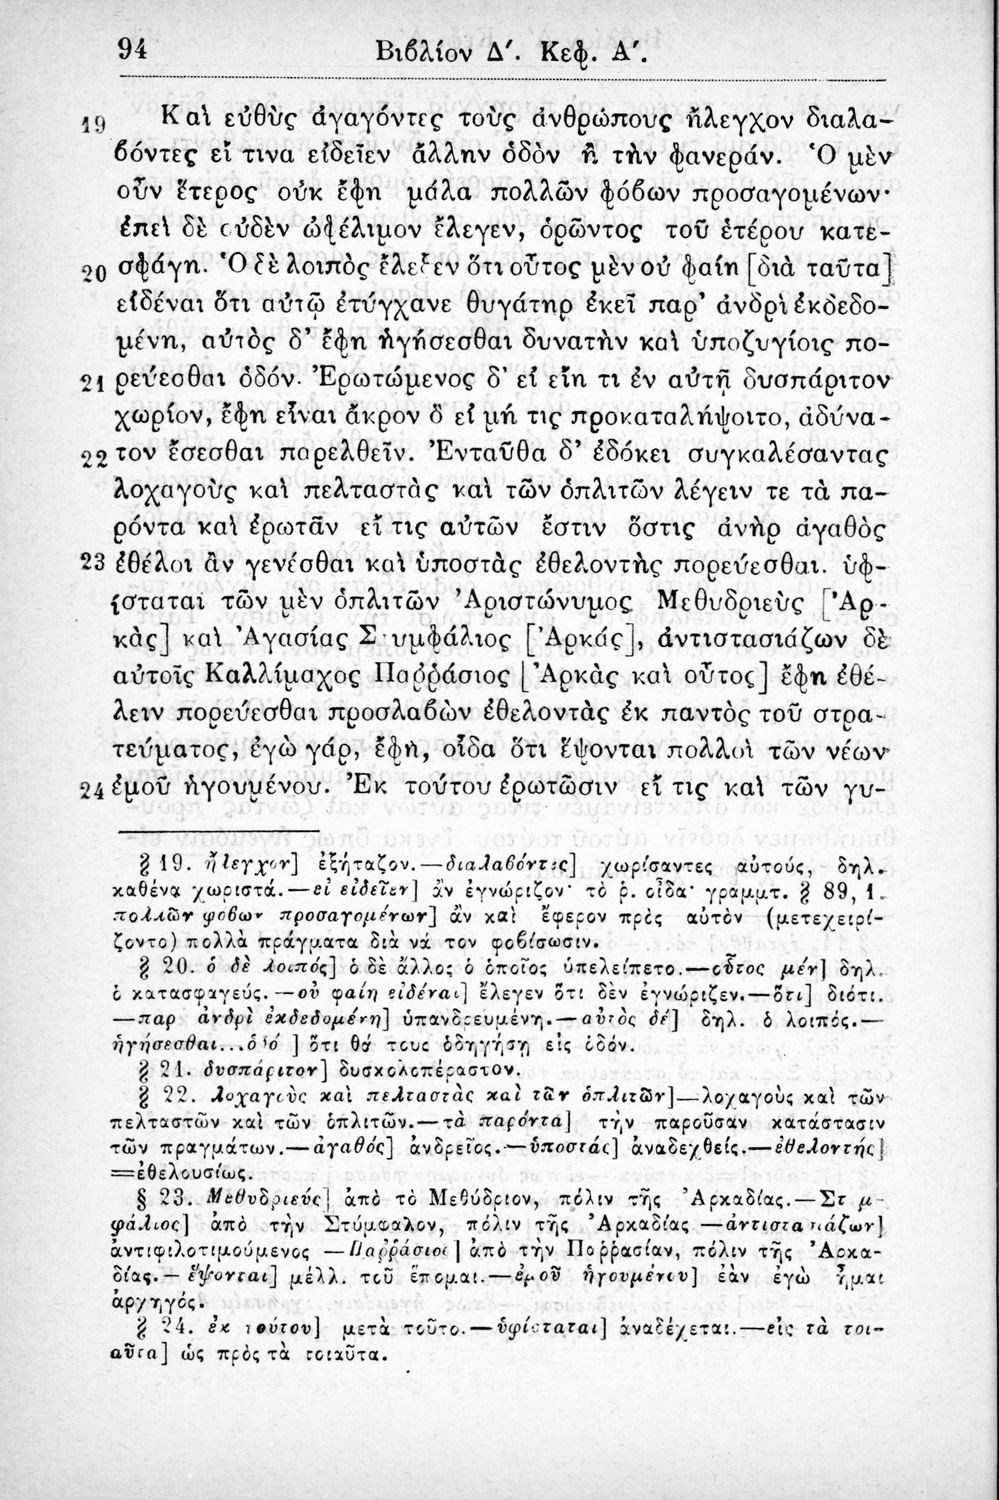 94 Βιβλίον Δ′. Κεφ. Α′.
19 Καὶ εὐθὺς ἀγαγόντες τοὺς ἀνθρώπους ἤλεγχον διαλα-
βόντες εἴ τινα εἰδεῖεν ἄλλην ὁδὸν ἢ τὴν φανεράν. Ὁ μὲν
οὖν ἕτερος οὐκ ἔφη μάλα πολλῶν φόβων προσαγομένων·
ἐπεὶ δὲ οὐδὲν ὠφέλιμον ἔλεγεν, ὁρῶντος τοῦ ἑτέρου κατε-
20 σφάγη. Ὁ δὲ λοιπὸς ἔλεξεν ὅτι οὗτος μὲν οὐ φαίη [διὰ ταῦτα]
εἰδέναι ὅτι αὐτῷ ἐτύγχανε θυγάτηρ ἐκεῖ παρ’ ἀνδρὶ ἐκδεδο-
μένη, αὐτὸς δ’ ἔφη ἡγήσεσθαι δυνατὴν καὶ ὑποζυγίοις πο-
21 ρεύεσθαι ὁδόν. Ἐρωτώμενος δ’ εἰ εἴη τι ἐν αὐτῇ δυσπάριτον
χωρίον, ἔφη εἶναι ἄκρον ὃ εἰ μή τις προκαταλήψοιτο, ἀδύνα-
22 τον ἔσεσθαι παρελθεῖν. Ἐνταῦθα δ’ ἐδόκει συγκαλέσαντας
λοχαγοὺς καὶ πελταστὰς καὶ τῶν ὁπλιτῶν λέγειν τε τὰ πα-
ρόντα καὶ ἐρωτᾶν εἴ τις αὐτῶν ἔστιν ὅστις ἀνὴρ ἀγαθὸς
23 ἐθέλοι ἂν γενέσθαι καὶ ὑποστὰς ἐθελοντὴς πορεύεσθαι. ὑφ-
ίσταται τῶν μὲν ὁπλιτῶν Ἀριστώνυμος Μεθυδριεὺς [Ἀρ-
κὰς] καὶ Ἀγασίας Στυμφάλιος [Ἀρκάς], ἀντιστασιάζων δὲ
αὐτοῖς Καλλίμαχος Παῤῥάσιος [Ἀρκὰς καὶ οὗτος] ἔφη ἐθέ-
λειν πορεύεσθαι προσλαβὼν ἐθελοντὰς ἐκ παντὸς τοῦ στρα-
τεύματος, ἐγὼ γάρ, ἔφη, οἶδα ὅτι ἕψονται πολλοὶ τῶν νέων
24 ἐμοῦ ἡγουμένου. Ἐκ τούτου ἐρωτῶσιν εἴ τις καὶ τῶν γυ-
§ 19. ἤλεγχον] ἐξήταζον.—διαλαβόντες] χωρίσαντες αὐτούς, δηλ.
καθένα χωριστά.—εἰ εἰδεῖεν] ἂν ἐγνώριζον· τὸ ῥ. οἶδα· γραμμτ. § 89, 1.
πολλῶν φόβων προσαγομένων] ἂν καὶ ἔφερον πρὸς αὐτὸν (μετεχειρί-
ζοντο) πολλὰ πράγματα διὰ νά τον φοβίσωσιν.
§ 20. ὁ δὲ λοιπός] ὁ δὲ ἄλλος ὁ ὁποῖος ὑπελείπετο.—οὗτος μέν] δηλ.
ὁ κατασφαγεύς.—οὐ φαίη εἰδέναι] ἔλεγεν ὅτι δὲν ἐγνώριζεν.—ὅτι] διότι.
—παρ ἀνδρὶ ἐκδεδομένη] ὑπανδρευμένη.—αὐτὸς δέ] δηλ. ὁ λοιπός.—
ἡγήσεσθαι...ὁδό ] ὅτι θά τους ὁδηγήσῃ εἰς ὁδόν.
§ 21. δυσπάριτον] δυσκολοπέραστον.
§ 22. λοχαγοὺς καὶ πελταστὰς καὶ τῶν ὁπλιτῶν]—λοχαγοὺς καὶ τῶν
πελταστῶν καὶ τῶν ὁπλιτῶν.—τὰ παρόντα] τὴν παροῦσαν κατάστασιν
τῶν πραγμάτων.—ἀγαθός] ἀνδρεῖος.—ὑποστάς] ἀναδεχθείς.—ἐθελοντής]
=ἐθελουσίως.
§ 23. Μεθυδριεύς] ἀπὸ τὸ Μεθύδριον, πόλιν τῆς Ἀρκαδίας.—Στ μ-
φάλιος] ἀπὸ τὴν Στύμφαλον, πόλιν τῆς Ἀρκαδίας —ἀντιστασιάζων]
ἀντιφιλοτιμούμενος —Παῤῥάσιος] ἀπὸ τὴν Παῤῥασίαν, πόλιν τῆς Ἀρκα-
δίας.—ἕψονται] μέλλ. τοῦ ἕπομαι.—ἐμοῦ ἡγουμένου] ἐὰν ἐγὼ ἦμαι
ἀρχηγός.
§ 24. ἐκ τούτου] μετὰ τοῦτο.—ὑφίσταται] ἀναδέχεται.—εἰς τὰ τοι-
αῦτα] ὡς πρὸς τὰ τοιαῦτα.